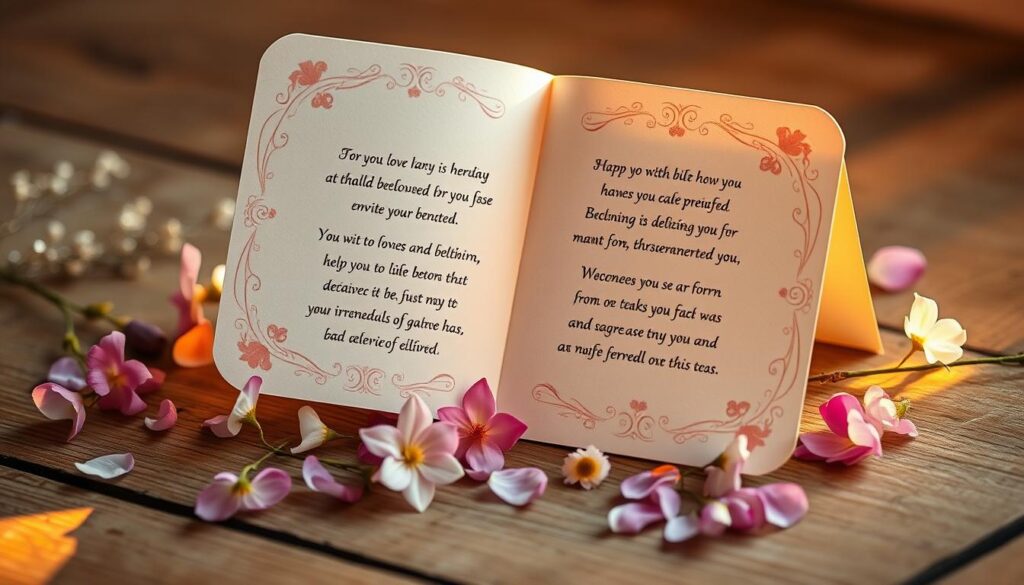 For you love lany is herday
at thalld beeloved for you fase
envite your bented.
You wit to foves and belthim,
help you to life betorn that
decaivec it be, fust may to
your irrenedals of gatrve has,
bad aelerice of ellifred.
Happ yo with bife how you
hanes you cafe preiufed.
Beclining is delizing you for
mant for, thrseranerted you,
Wecornees you se ar forrn
from ore teaks you fact was
and sagre ase tny you and
as nufe ferredl ore this teas.